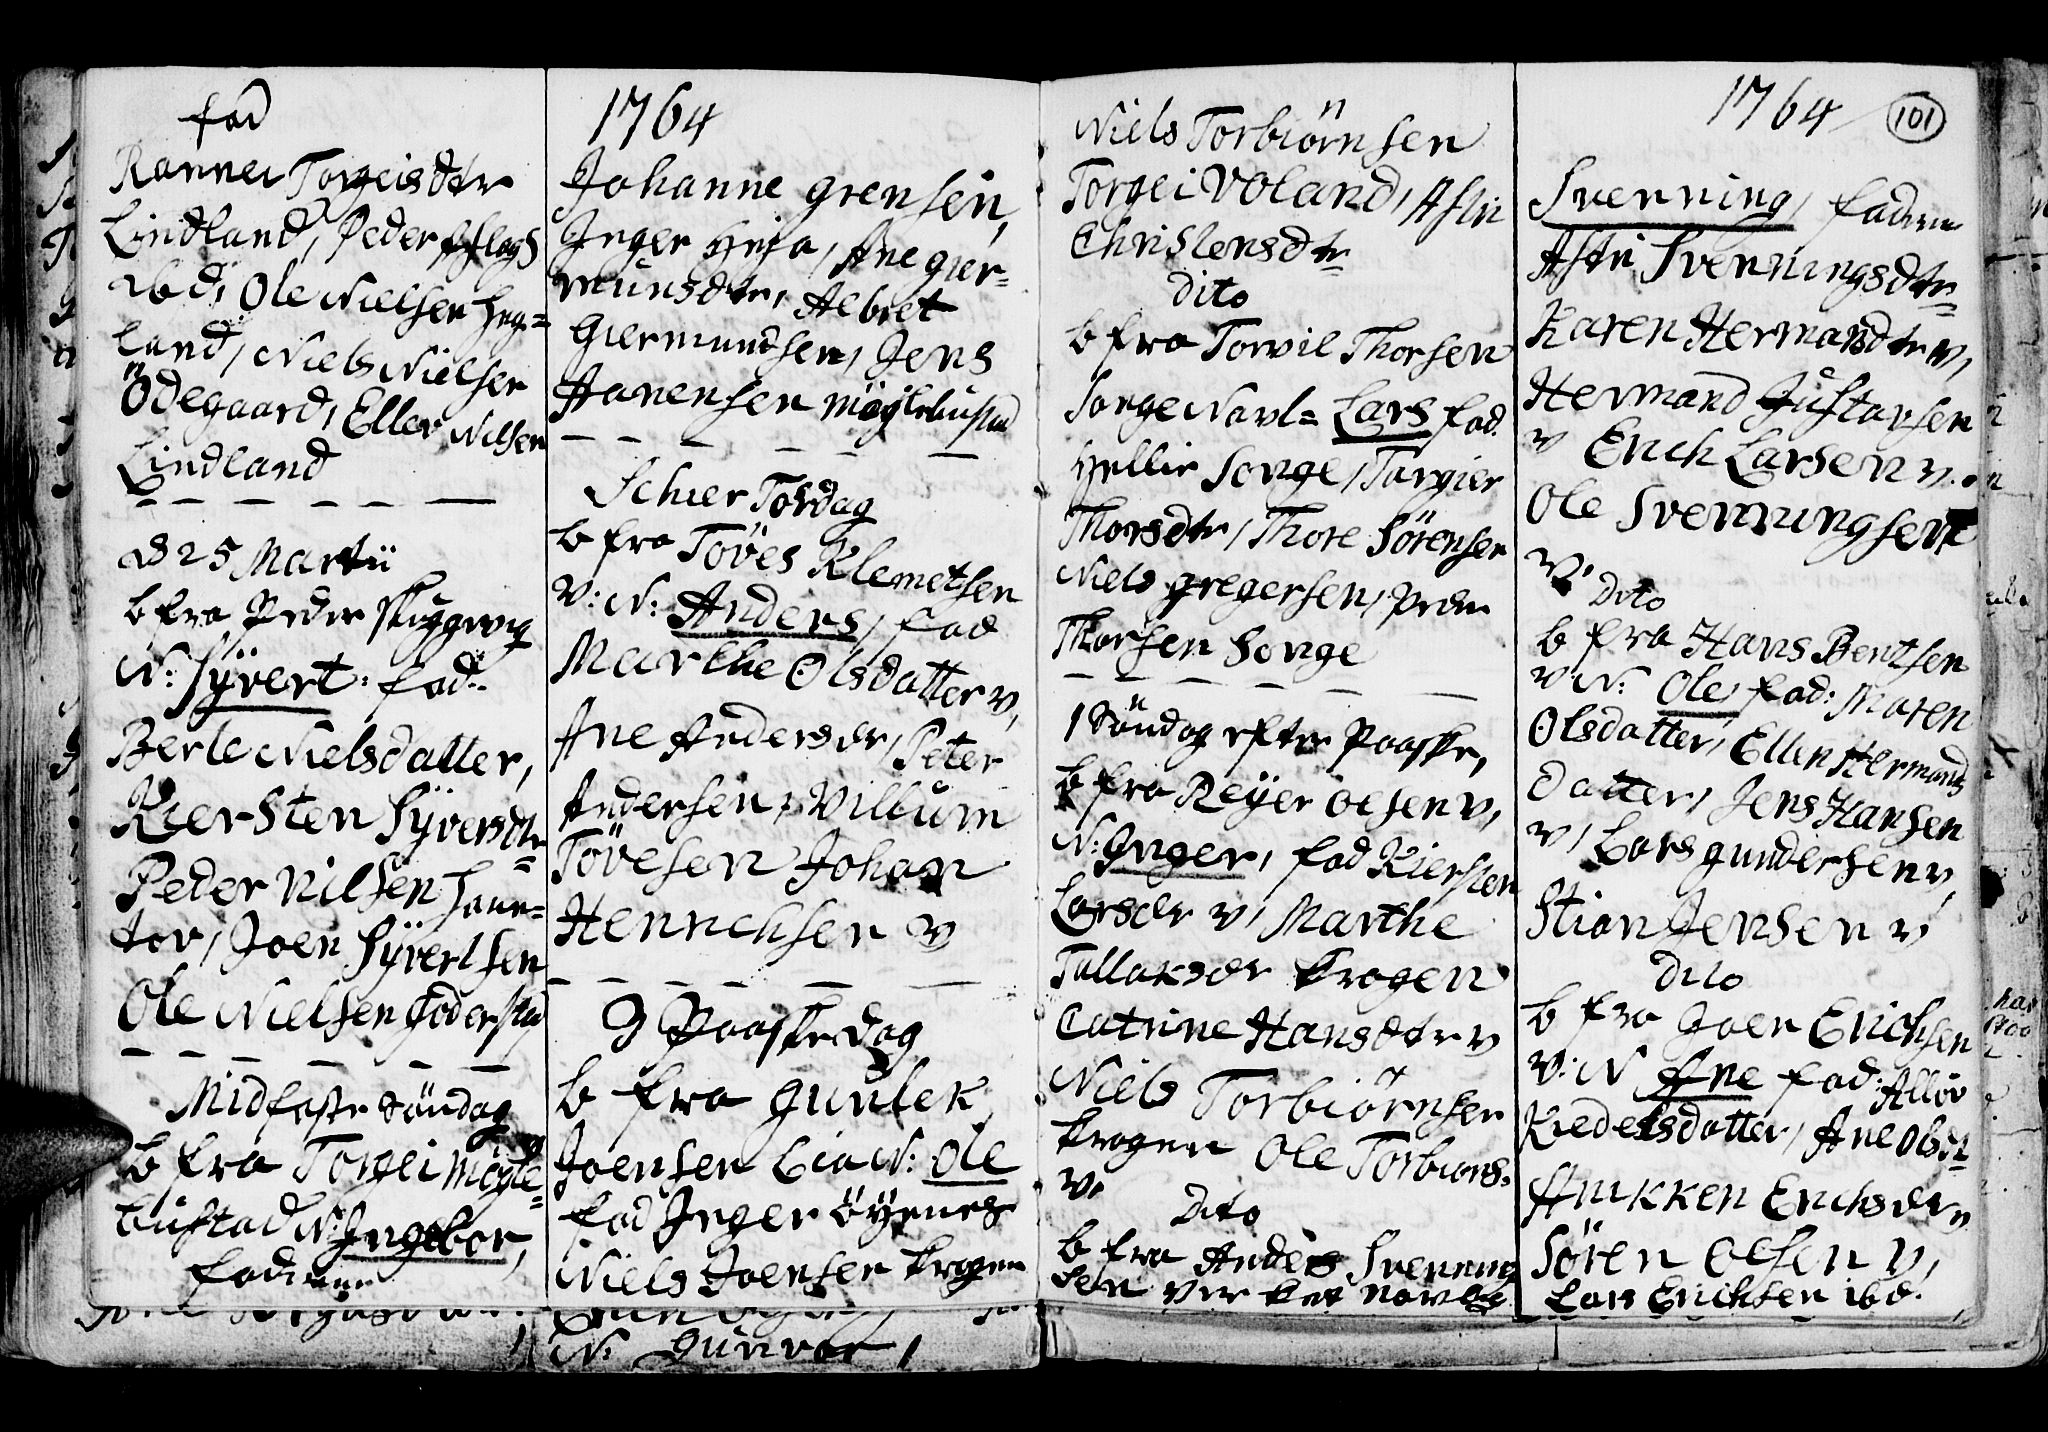 fad
Ranner Torgeisdtr
Lindland, Peder
ibd, Ole Nielsen Heg=
land, Niels Nielsen
Ödegaard, Eller Nilsen
Lindland
d 25 Martii
b fra Peder Skuggevig
N: Syvert. fad.
Berte Nielsdatter,
Kiersten Syversdtr
Peder Nilsen Haue=
tov, Joen Syvertsen
Ole Nielsen
Midfaste Söndag
b fra Torgei Mögle=
bustad N: Ingebor,
faderne
1764
Johanne Grensen,
Inger Heja, Ane Gier=
munsdtr, Albret
Giermundsen, Jens
Aanensen Möglebustad
Schier Torsdag
b fra Töves Klemetsen
v: N: Anders, fad
Marthe Olsdatter v,
Ane Andersdr, Peter
Andersen, Villum
Tövesen Johan
Henrichsen v
3 Paaskedag
b fra Gunlek
Joensen Lia N: Ole
fad Inger Öyenes
Niels Joensen Kragen
N: Gunvor,
Niels Torbiörnsen
Torgei Voland, Astri
Christensdtr
dito
b fra Torvil Thorsen
Songe Navl= Lars fad.
Hellie Songe, Torgier
Thorsdtr, Thore Sörensen
Niels Gregersen, Peder
Thorsen Songe
1 Söndag efter Paaske,
b fra Reyer Olsen v,
N: Inger, fad Kiersten
Larsdr v, Marthe
Tallaksdr Kragen
Catrine Hansdtr v
Niels Torbiörnsen
Kragen Ole Torbiörns.
v.
Dito
b fra Anders Svenning
sen Verket
1764 101
Svenning, faderne
Astri Svenningsdtr
Karen Hermansdtr v,
Hermand Gustavsen
v Erich Larsen v.
Ole Svenningsen
v.
Dito
b fra Hans Bentsen
v. N: Ole fad: Maren
Olsdatter, Ellen Hermands
datter, Jens Hansen
v, Lars Gundersen v,
Stian Jensen v
Dito
b fra Joen Erichsen
v: N Ane fad: Allöv
Kiedelsdatter, Ane Olsdt
Anikken Erichsdr v
Sören Olsen v,
Lars Erichsen ibd.